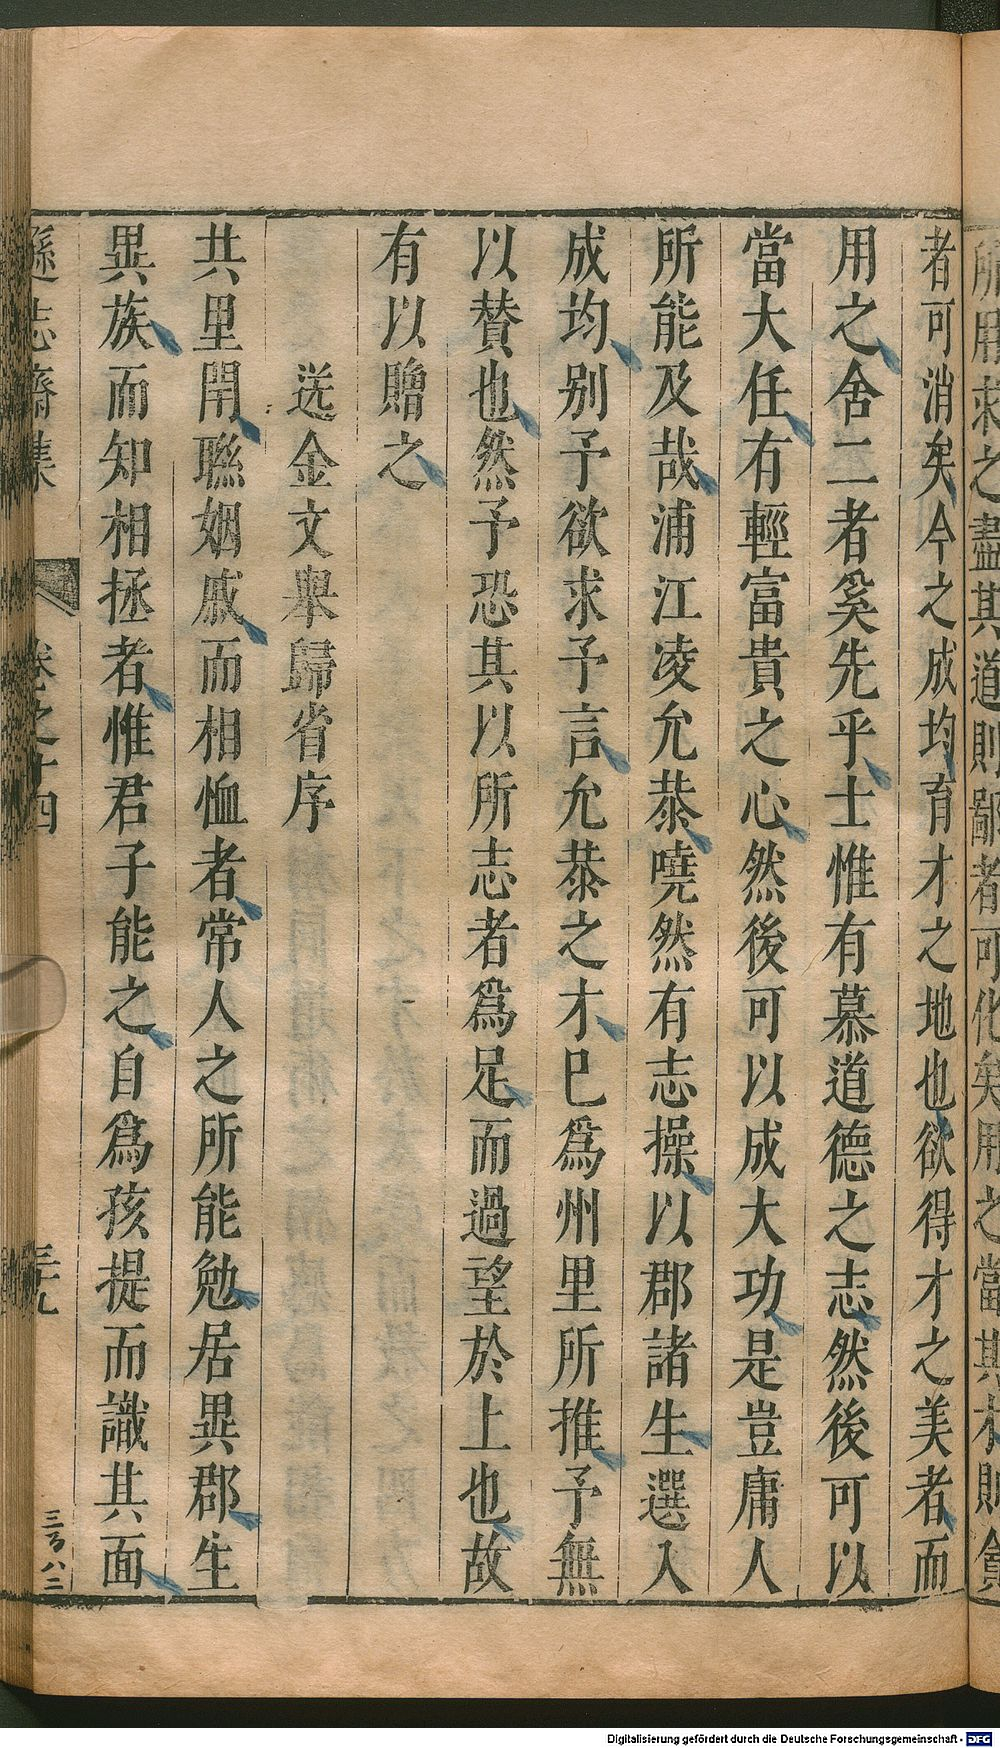 所用求之盡其道則鄙者可化矣用之當其材則貪
者可消矣今之成均育才之地也欲得才之美者而
用之舍二者奚先乎士惟有慕道德之志然後可以
當大任有輕富貴之心然後可以成大功是豈庸人
所能及哉浦江凌允恭嘵然有志操以郡諸生選入
成均别予欲求予言允恭之才已爲州里所推予無
以賛也然予恐其以所志者爲足而過望於上也故
有以贈之
送金文舉歸省序
共里閈聮姻戚而相恤者常人之所能勉居異郡生
異族而知相拯者惟君子能之自爲孩提而識其面
遜志齋集
卷之十四
三十九
三百八三
Digitalisierung gefördert durch die Deutsche Forschungsgemeinschaft - DFG